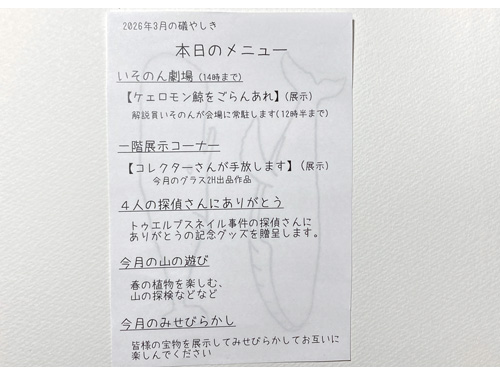 2026年3月の礒やしき
本日のメニュー
いそのん劇場(14時まで)
【ケエロモン鯨をごらんあれ】(展示)
解説員いそのんが会場に常駐します(12時半まで)
一階展示コーナー
【コレクターさんが手放します】(展示)
今月のグラス2H出品作品
4人の探偵さんにありがとう
トゥエルブスネイル事件の探偵さんに
ありがとうの記念グッズを贈呈します。
今月の山の遊び
春の植物を楽しむ、
山の探検などなど
今月のみせびらかし
皆様の宝物を展示してみせびらかしてお互いに
楽しんでください